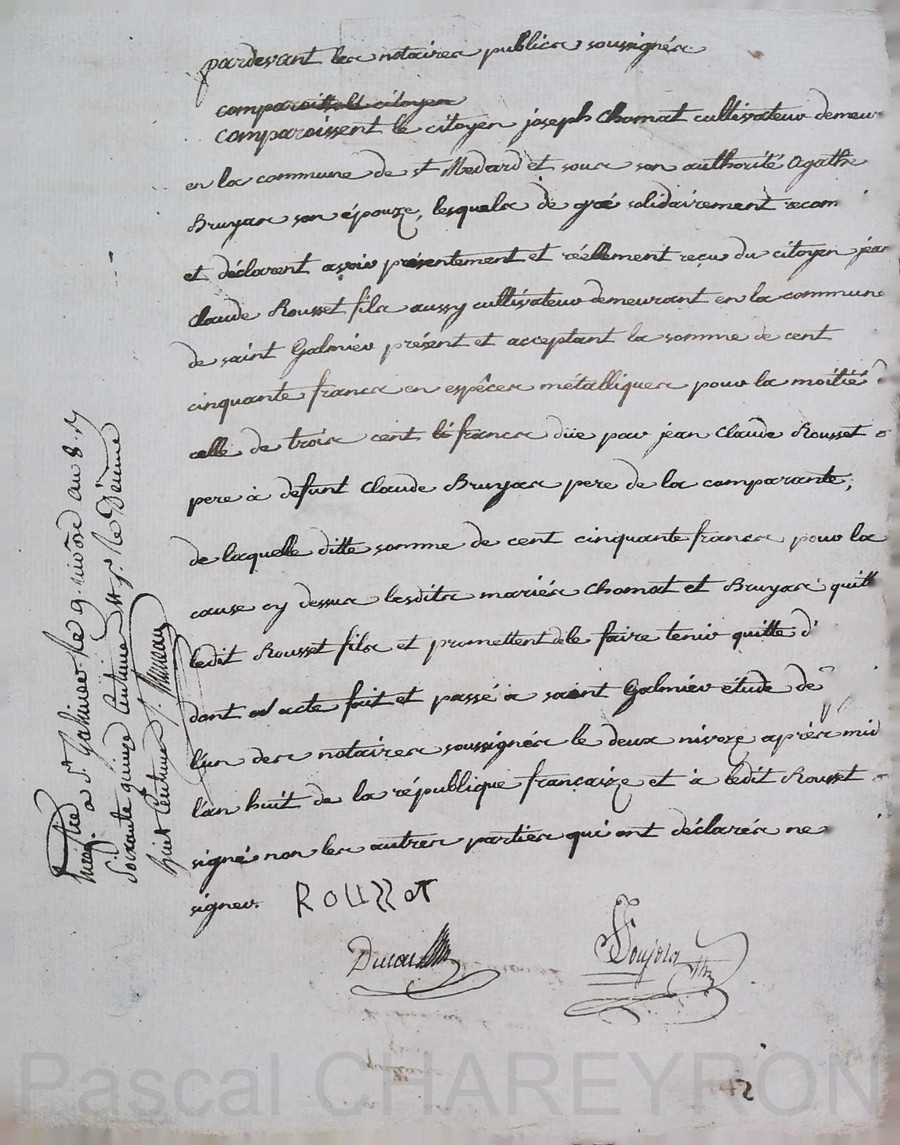 pardevant les notaires publics soussignés
comparoit le citoyen
comparoissent le citoyen joseph Chomat cultivateur demeur
en la commune de st Medard et sous son authorité Agathe
Bruyas son épouze, lesquels de gré solidairement recom
et déclarent avoir présentement et réellement reçu du citoyen jean
Claude Rousset fils aussy cultivateur demeurant en la commune
de saint Galmier présent et acceptant la somme de cent
cinquante francs en espêces métalliques pour la moitié d
celle de trois cent francs düe par jean Claude Rousset
pere à defunt Claude Bruyas pere de la comparante,
de laquelle ditte somme de cent cinquante francs pour la
cause cy dessus lesdits mariés Chomat et Bruyas quitt
ledit Rousset fils et promettent de le faire tenir quitte d'
dont acte fait et passé à saint Galmier étude de
l'un des notaires soussignés le deux nivoze après mid
l'an huit de la république françaize et à ledit Rousset
signé non les autres parties qui ont déclarés ne
signer.
ROUSSET
Enregistré à St Galmier le 9. nivôse an 8. R
soixante quinze centimes et pr le Dixme
huit centimes
Pascal CHAREYRON